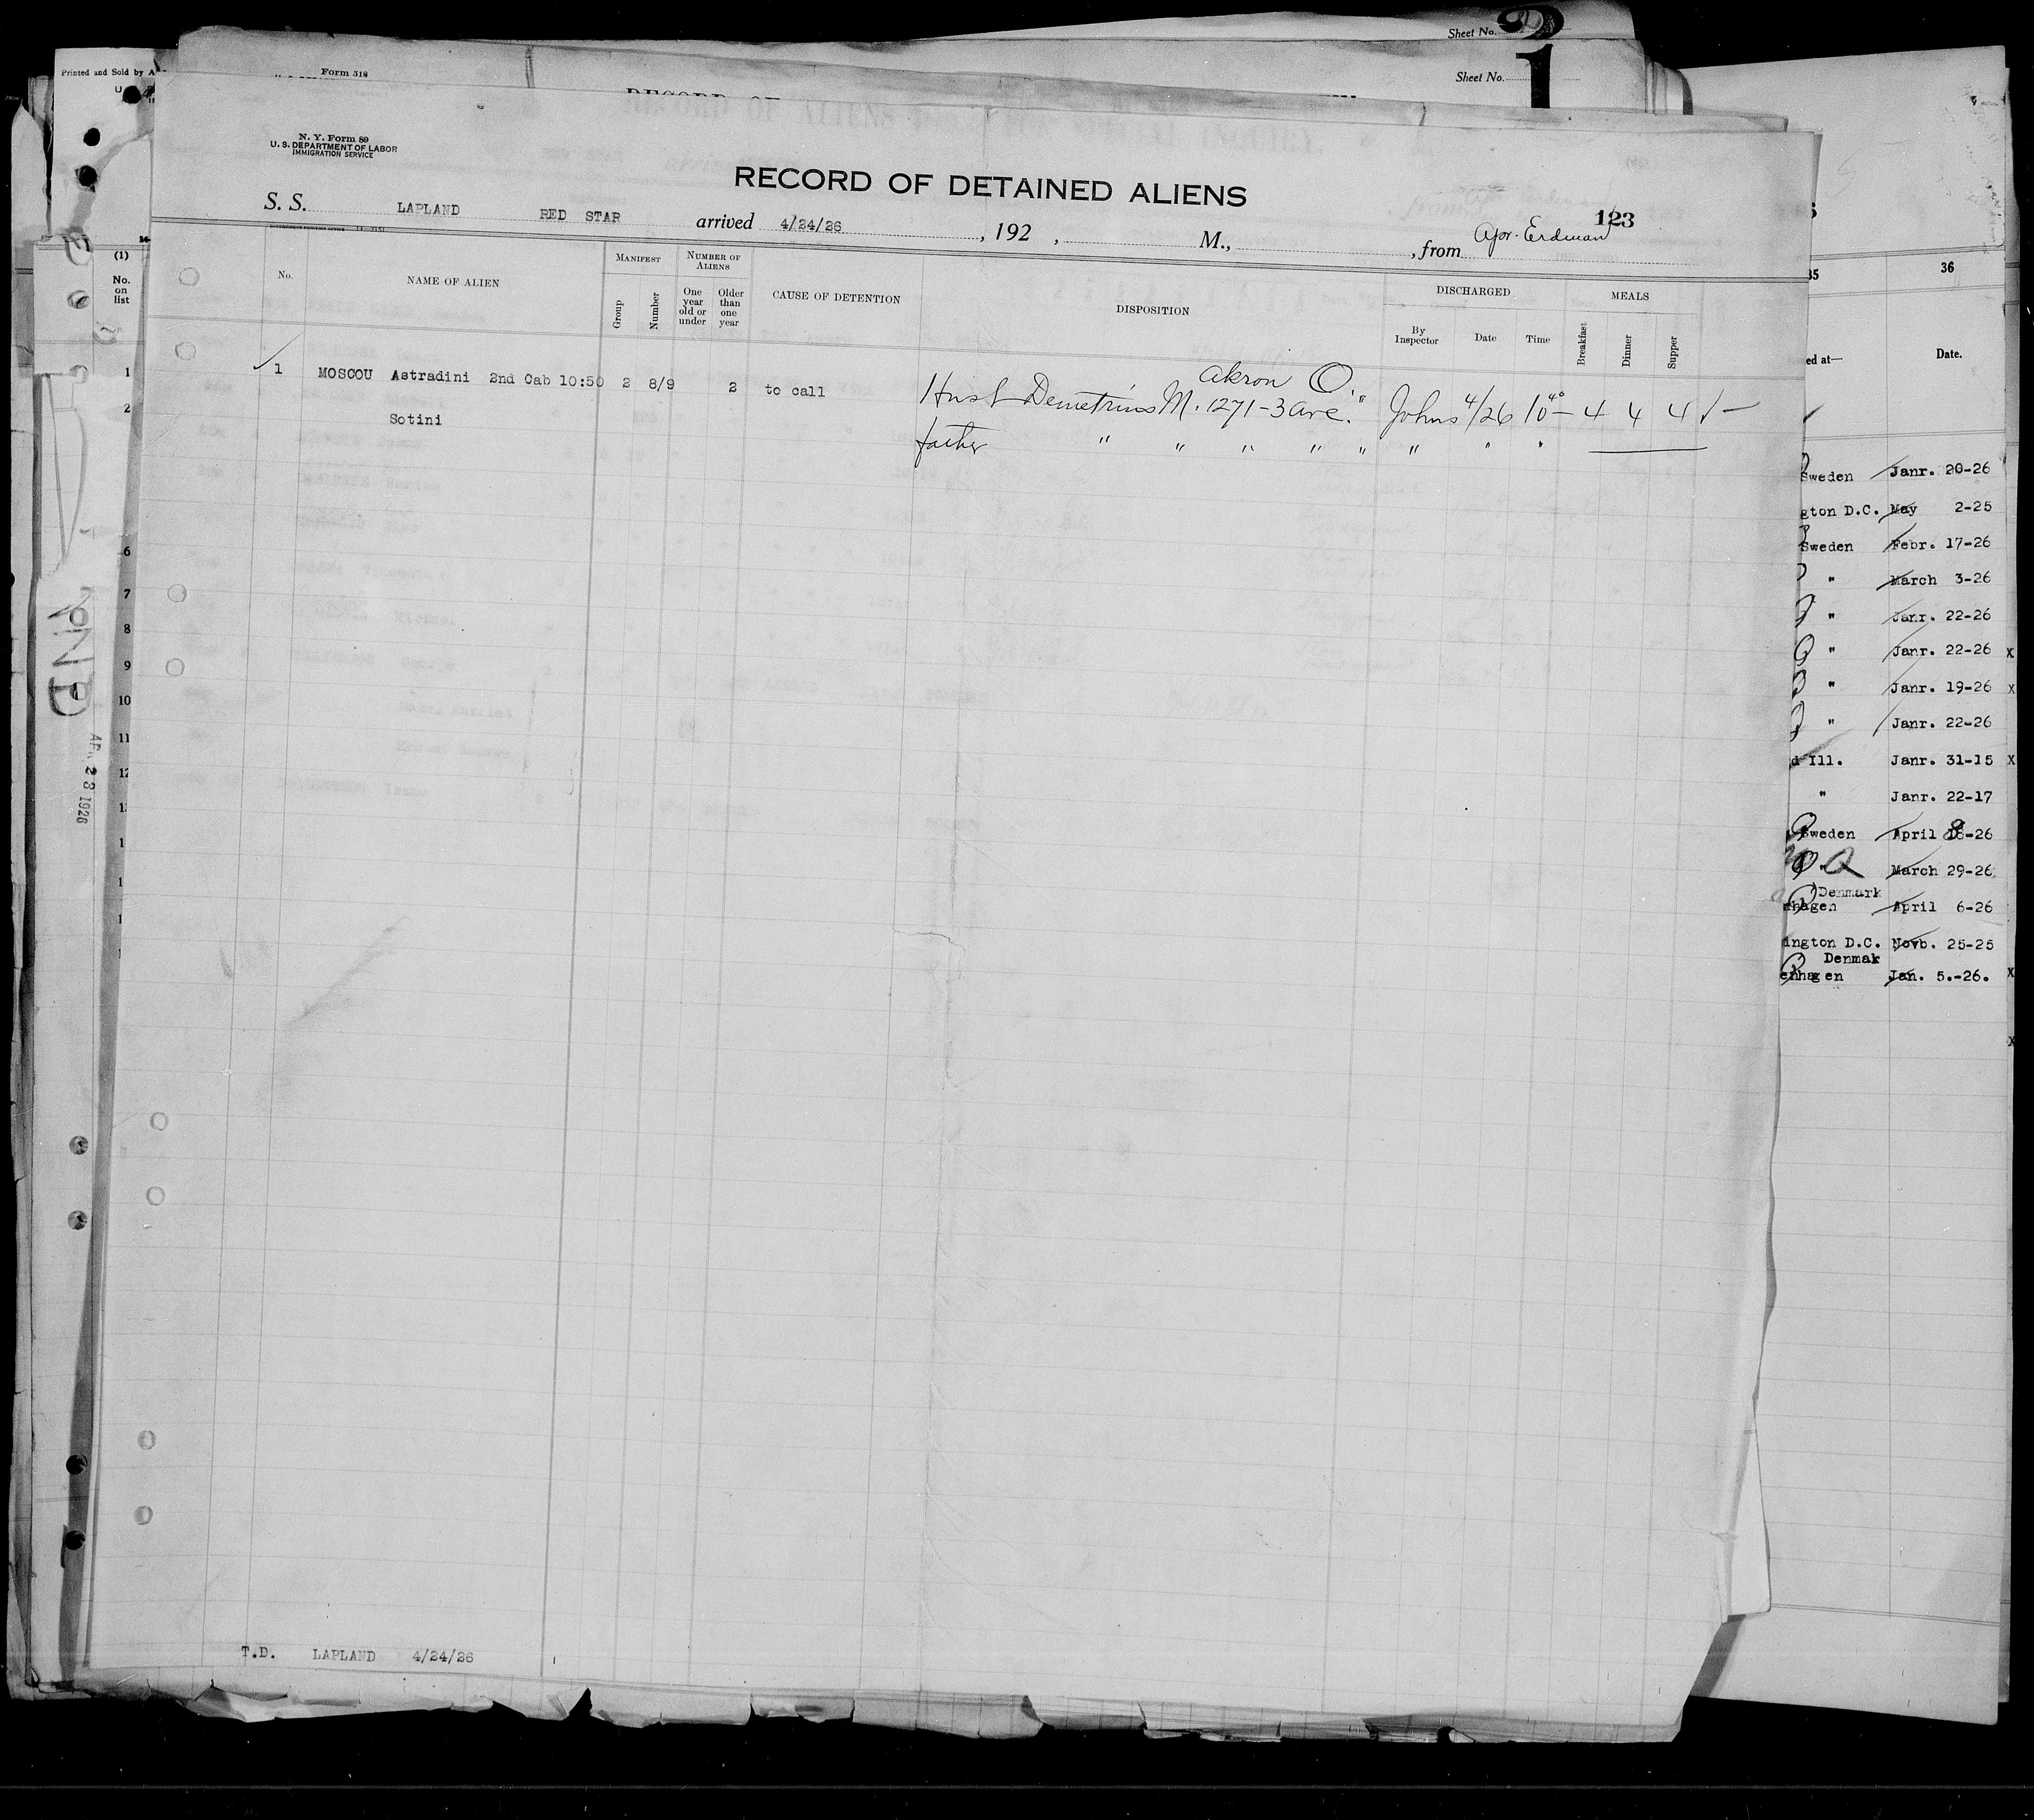 Sheet No. 2
Sheet No. 1
Printed and Sold by A
Form 518
N. Y. Form 89
U. S. DEPARTMENT OF LABOR
IMMIGRATION SERVICE
RECORD OF DETAINED ALIENS
123
S. S. LAPLAND RED STAR arrived 4/24/26, 192 , M., , from Apr. Erdman
No.
NAME OF ALIEN
MANIFEST
Group
Number
NUMBER OF ALIENS
One year old or under
Older than one year
CAUSE OF DETENTION
DISPOSITION
DISCHARGED
By Inspector
Date
Time
MEALS
Breakfast
Dinner
Supper
Akron O.
1 MOSCOU Astradini 2nd Cab 10:50 2 8/9 2 to call Husb Demetrius M. 1271-3 Ave. " Johns 4/26 10 40 4 4 4 √ —
Sotini father " " " " " " " "
T.D. LAPLAND 4/24/26
(1)
No.
on
list
1
2
6
7
8
9
10
11
12
APR 28 1926
35
36
ed at—
Date.
Sweden Janr. 20-26
gton D.C. May 2-25
Sweden Febr. 17-26
" March 3-26
" Janr. 22-26
" Janr. 22-26 x
" Janr. 19-26 x
" Janr. 22-26
d Ill. Janr. 31-15 x
" Janr. 22-17
Sweden April 18-26
" March 29-26
Denmark
nhagen April 6-26
ington D.C. Novb. 25-25
Denmak
enhagen Jan. 5.-26. x
x